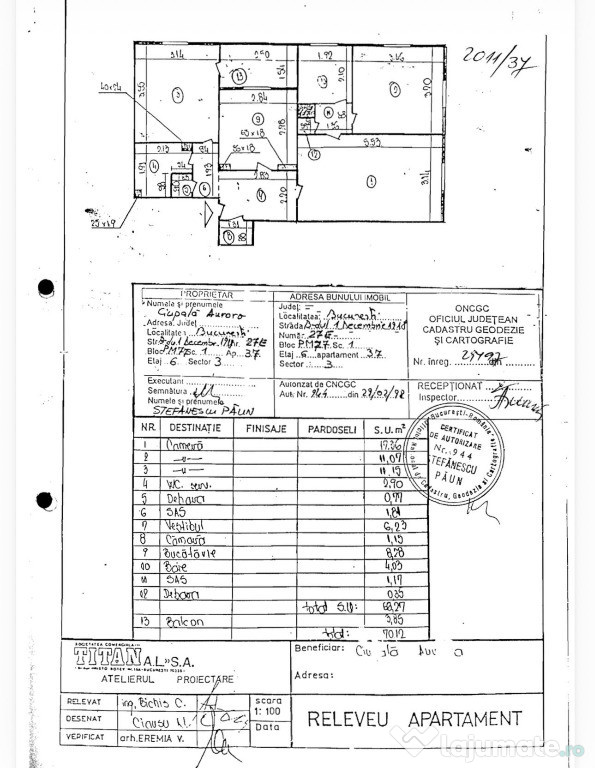 2011/37
3.14
2.50
1.92
3.46
3.55
13
1.54
2.10
3.20
40x24
3
2.84
2
9
2.98
60x18
36x18
5.53
2.13
94
12
1
3.14
4
1.93
6
2.83
2.20
7
8
25x19
PROPRIETAR
Numele și prenumele
Giupală Aurora
Adresa: Județ
Localitatea București
Strada B-dul 1 Decembrie 1918 Nr. 27E
Bloc P.M27 Sc. 1 Ap. 37
Etaj 6 Sector 3
ADRESA BUNULUI IMOBIL
Județ
Localitatea: București
Strada B-dul 1 Decembrie 1918
Număr 27E
Bloc P.M27 Sc. 1
Etaj 6 apartament 37
Sector 3
ONCGC
OFICIUL JUDEȚEAN
CADASTRU GEODEZIE
ȘI CARTOGRAFIE
Nr. înreg.
Executant
Semnătura
Numele și prenumele
ȘTEFĂNESCU PĂUN
Autorizat de CNCGC
Aut. Nr. 944 din 29/07/98
RECEPȚIONAT
Inspector
CERTIFICAT
DE AUTORIZARE
Nr. 944
ȘTEFĂNESCU
PĂUN
NR. DESTINAȚIE FINISAJE PARDOSELI S.U. m²
1 Cameră 19.36
2 —"— 11,07
3 —"— 11,15
4 W.C. serv. 2,90
5 Debara 0,77
6 SAS 1,81
7 Vestibul 6,23
8 Cămară 1,15
9 Bucătărie 8,28
10 Baie 4,03
11 SAS 1,17
12 Debara 0,35
total S.U: 68,27
13 Balcon 3,85
total: 70,12
SOCIETATEA COMERCIALĂ
TITAN A.L» S.A.
ATELIERUL PROIECTARE
Beneficiar:
Adresa:
RELEVAT ing. Bichis C.
DESENAT
VERIFICAT arh. EREMIA V.
scara
1: 100
Data
RELEVEU APARTAMENT
lajumate.ro